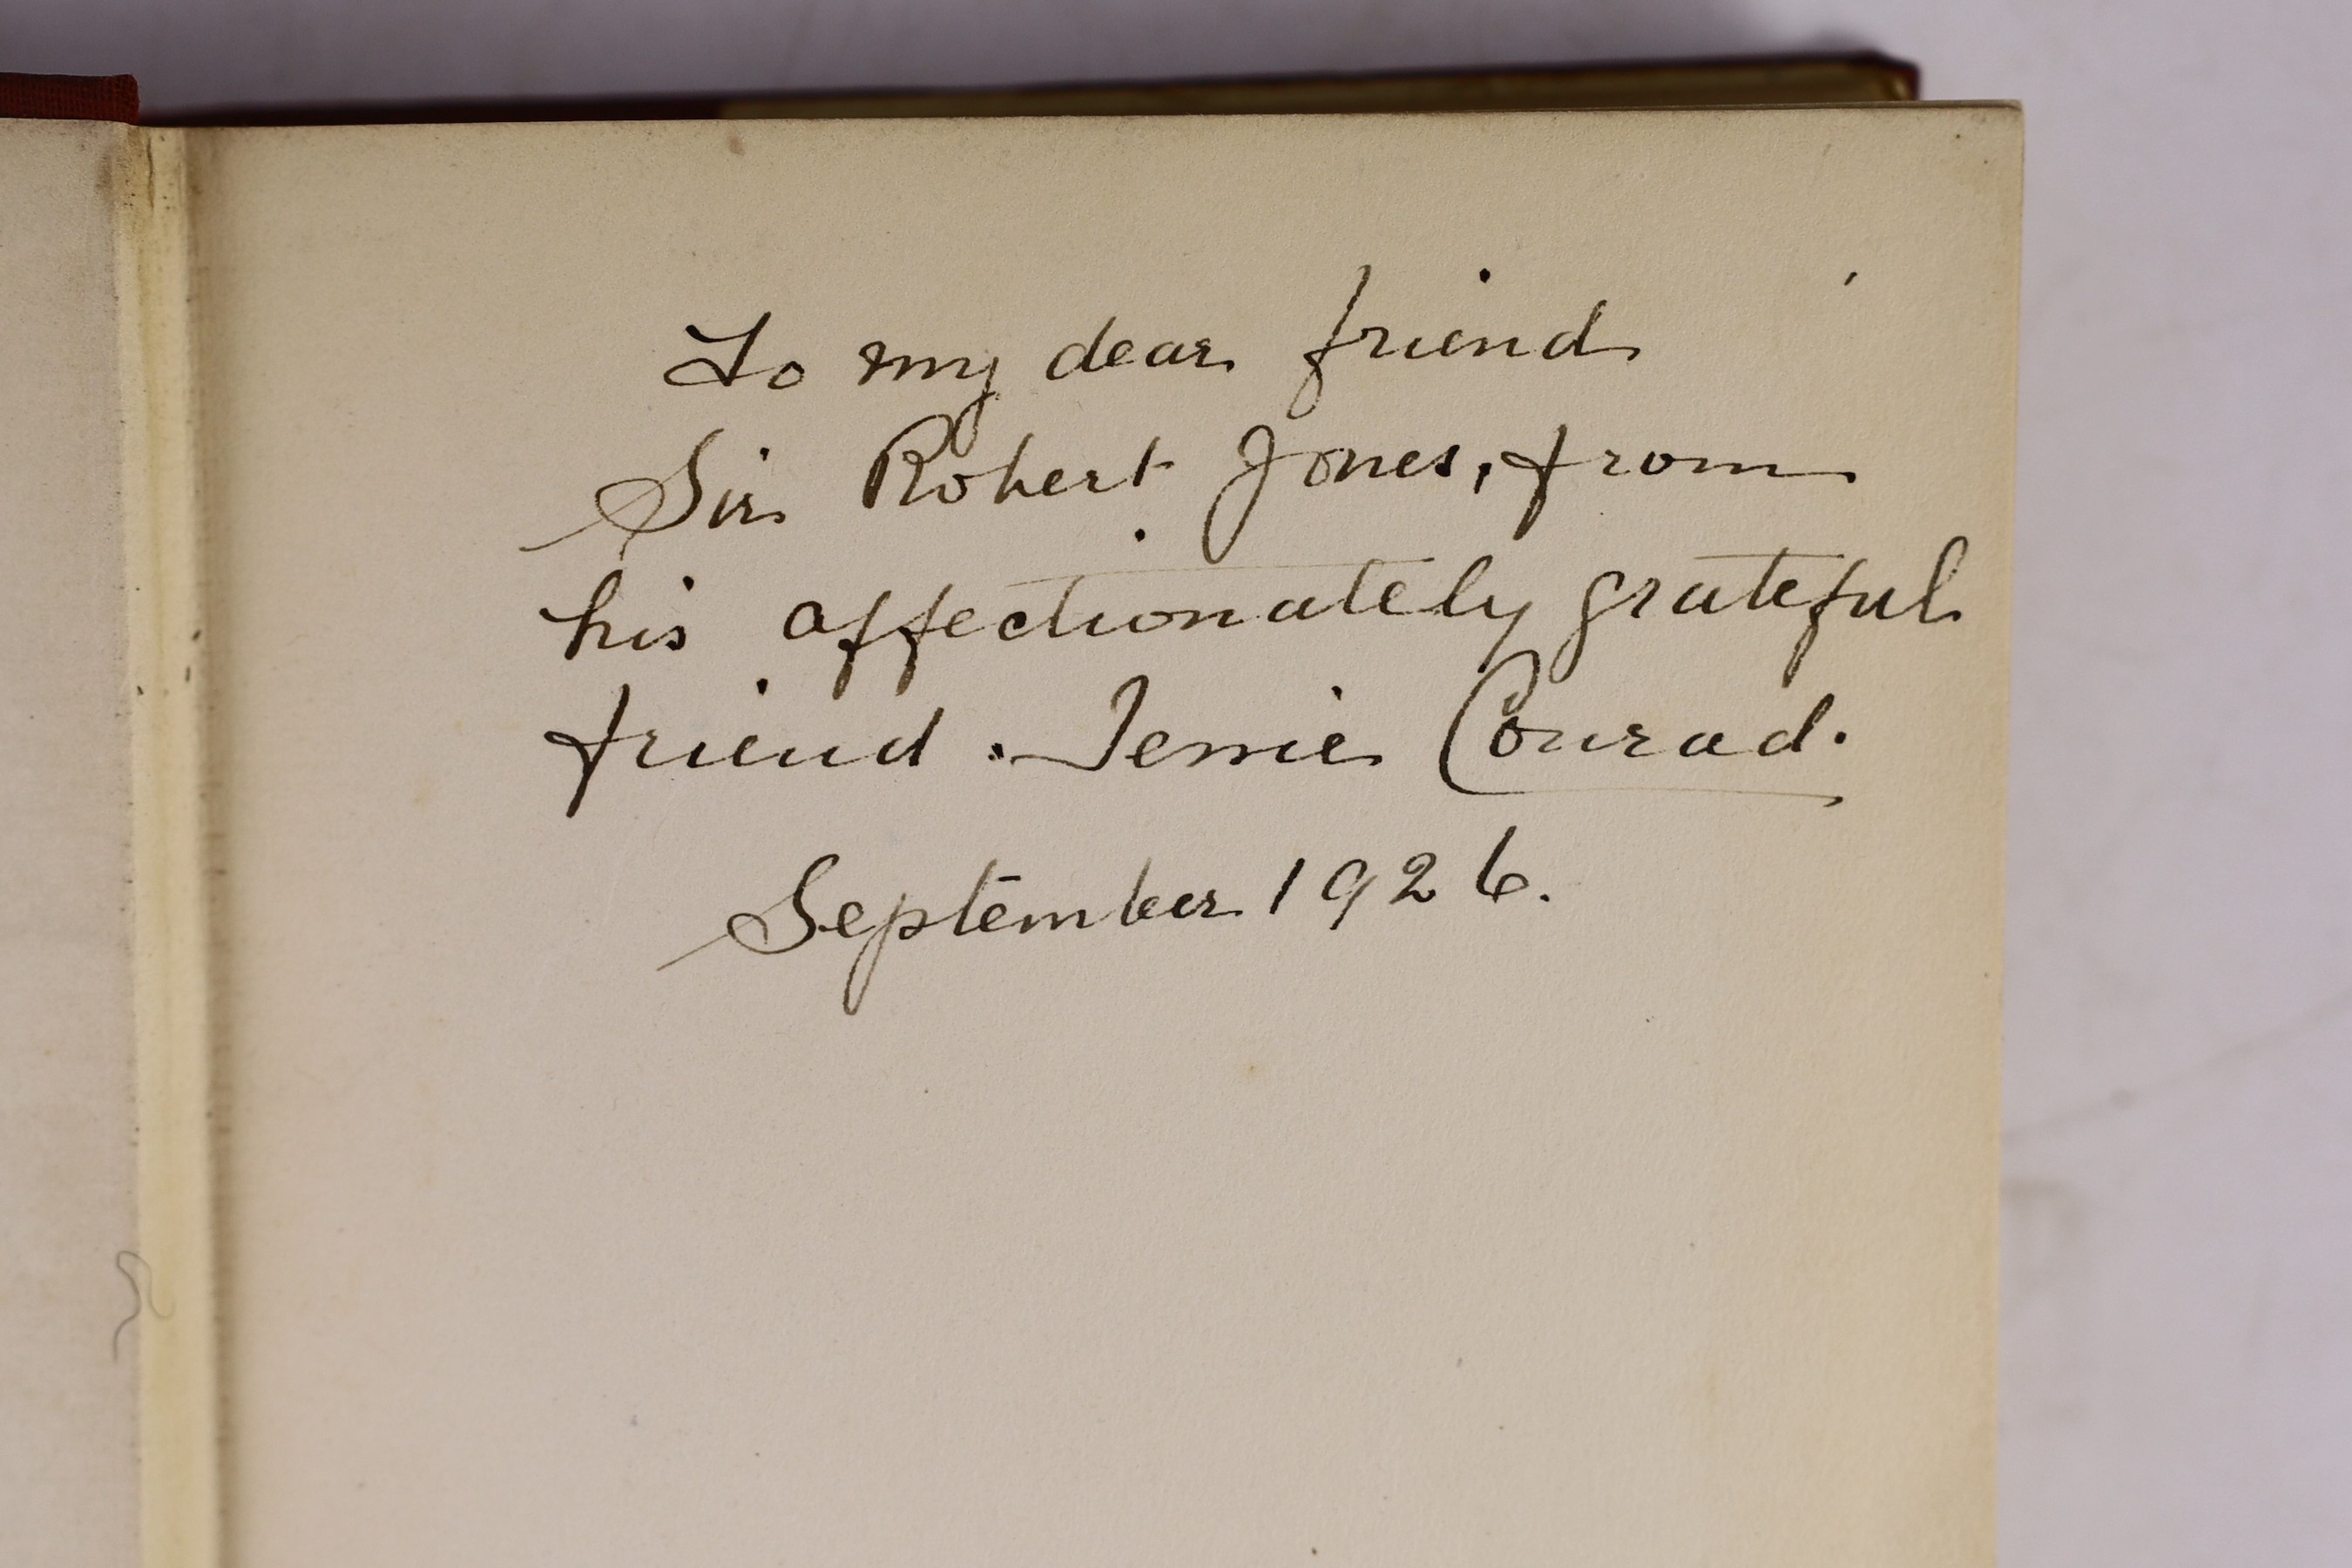 To my dear friend
Sir Robert Jones, from
his affectionately grateful
friend. Jessie Conrad.
September 1926.